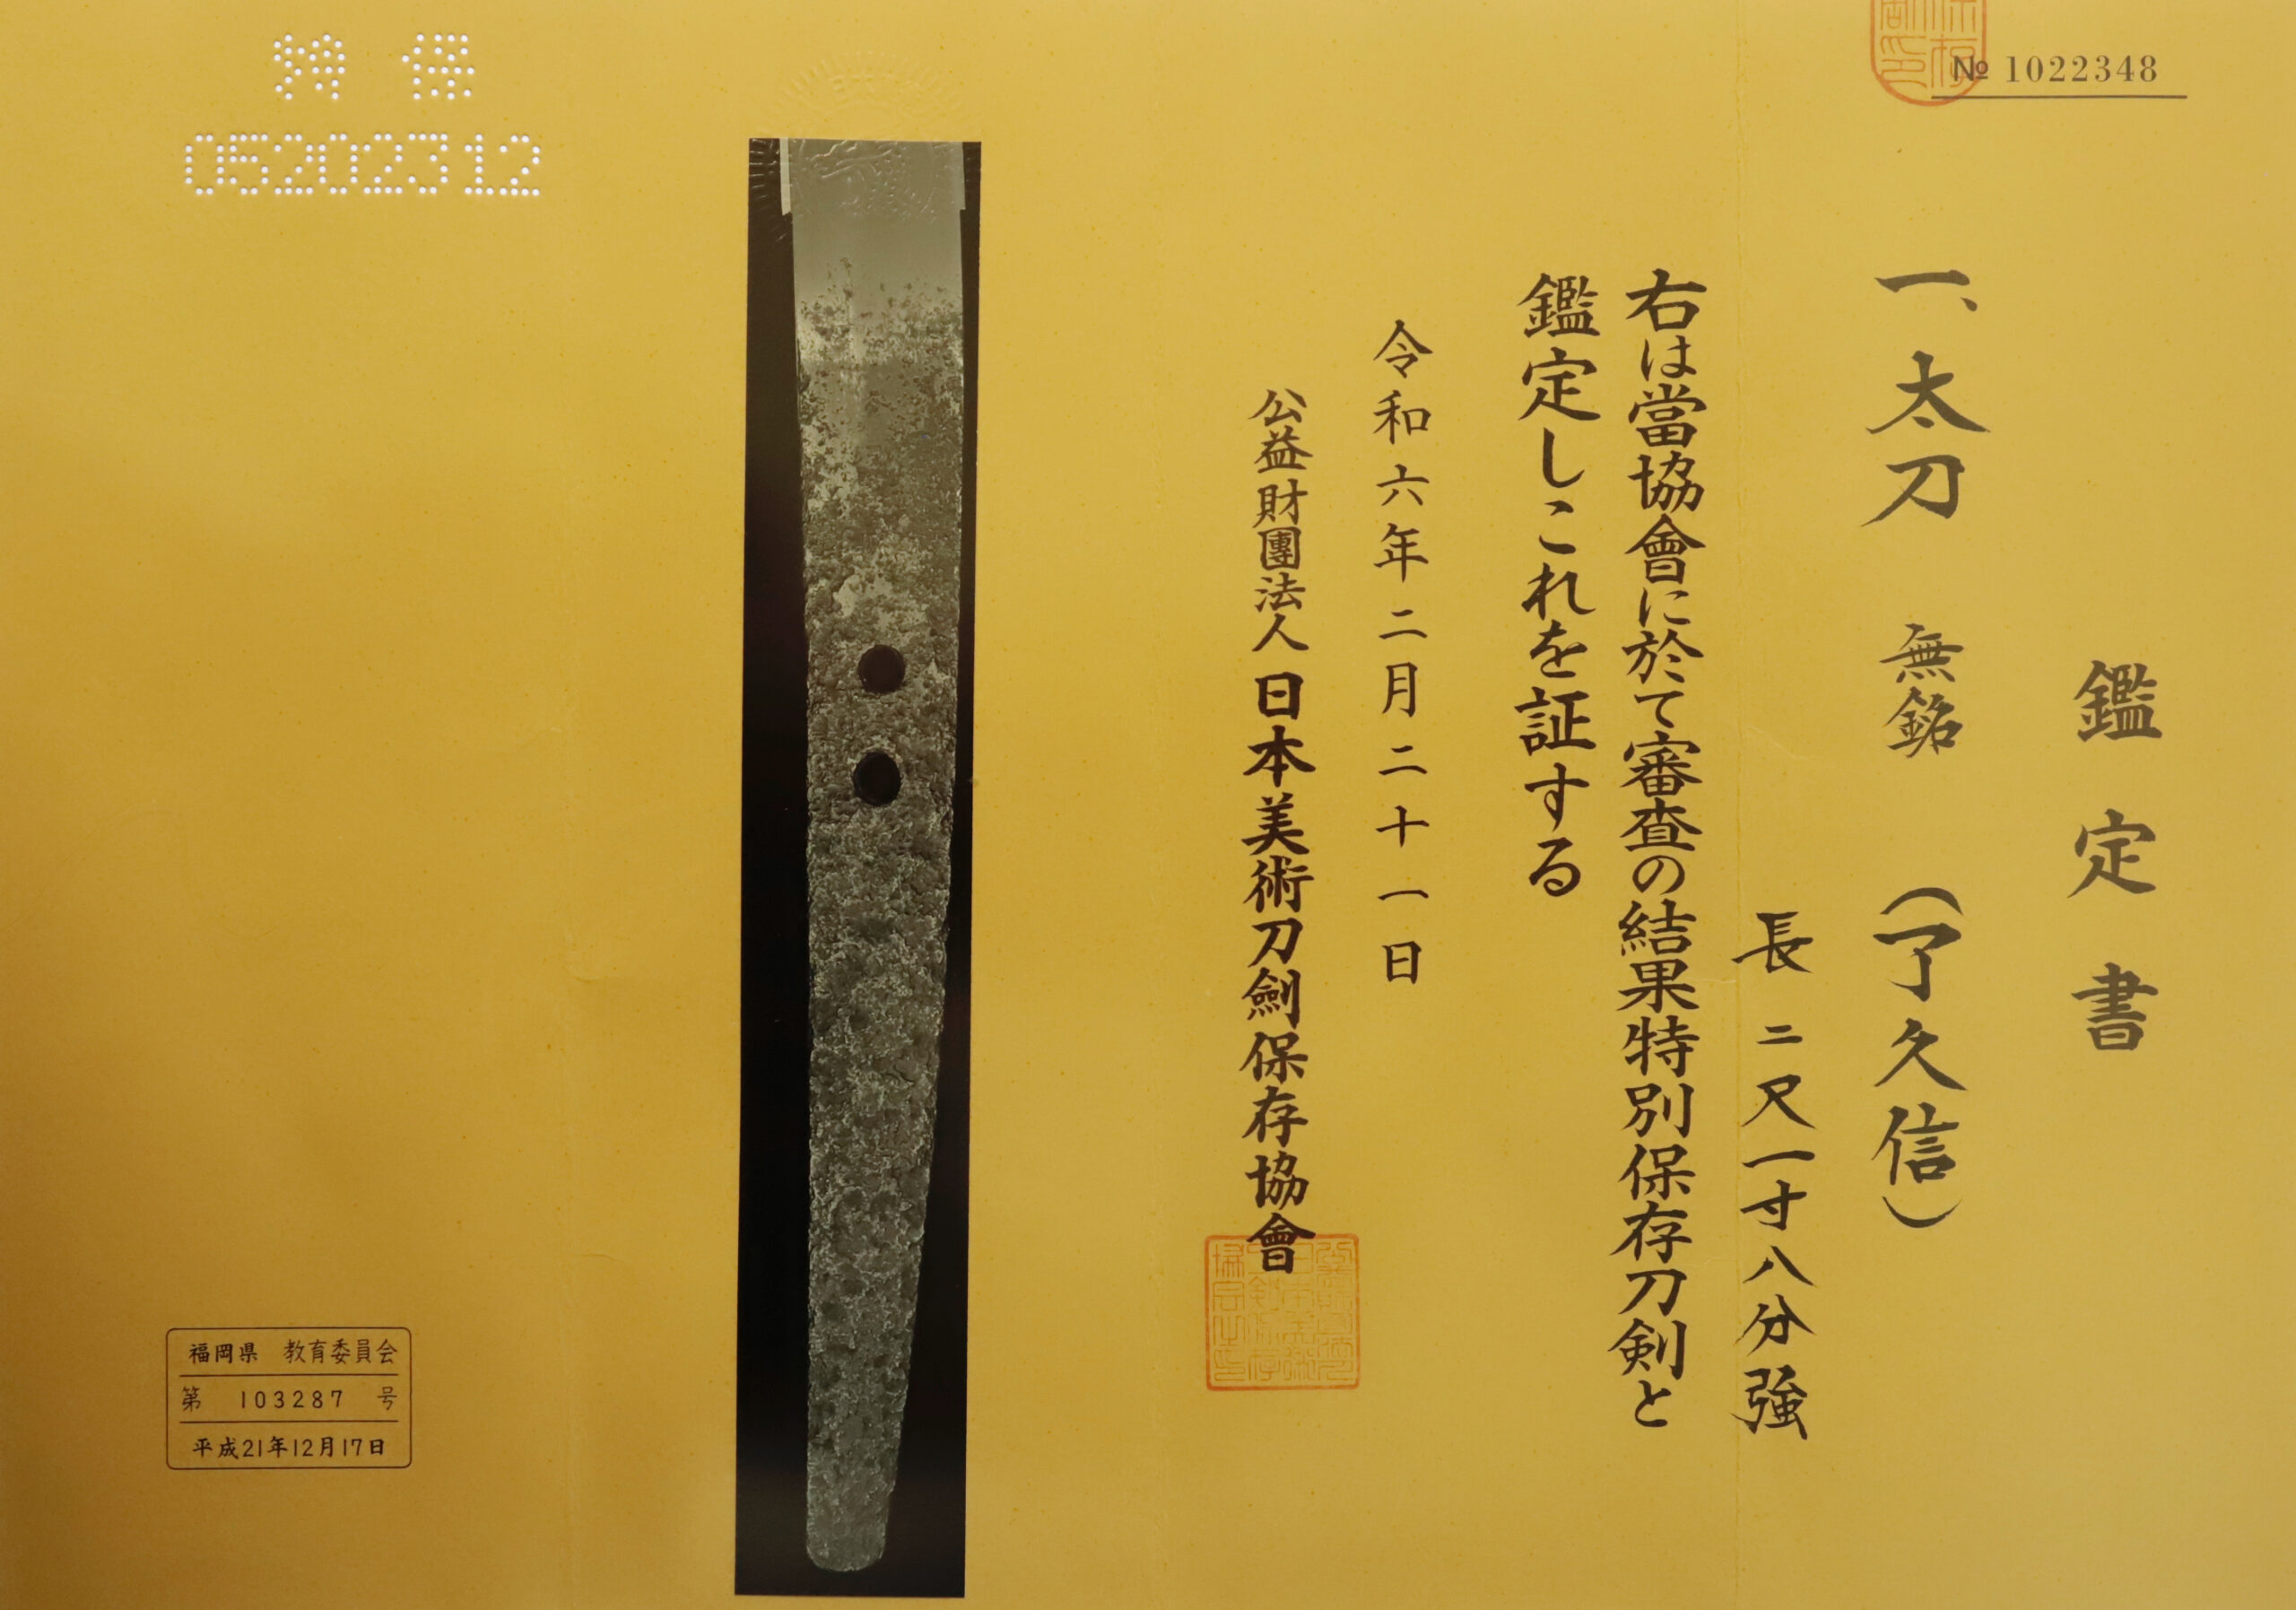 № 1022348
鑑定書
一、太刀 無銘 (了久信)
長 二尺一寸八分強
右は當協會に於て審査の結果特別保存刀剣と
鑑定しこれを証する
令和六年二月二十一日
公益財團法人 日本美術刀劍保存協會
特保
05202312
福岡県 教育委員会
第 103287 号
平成21年12月17日